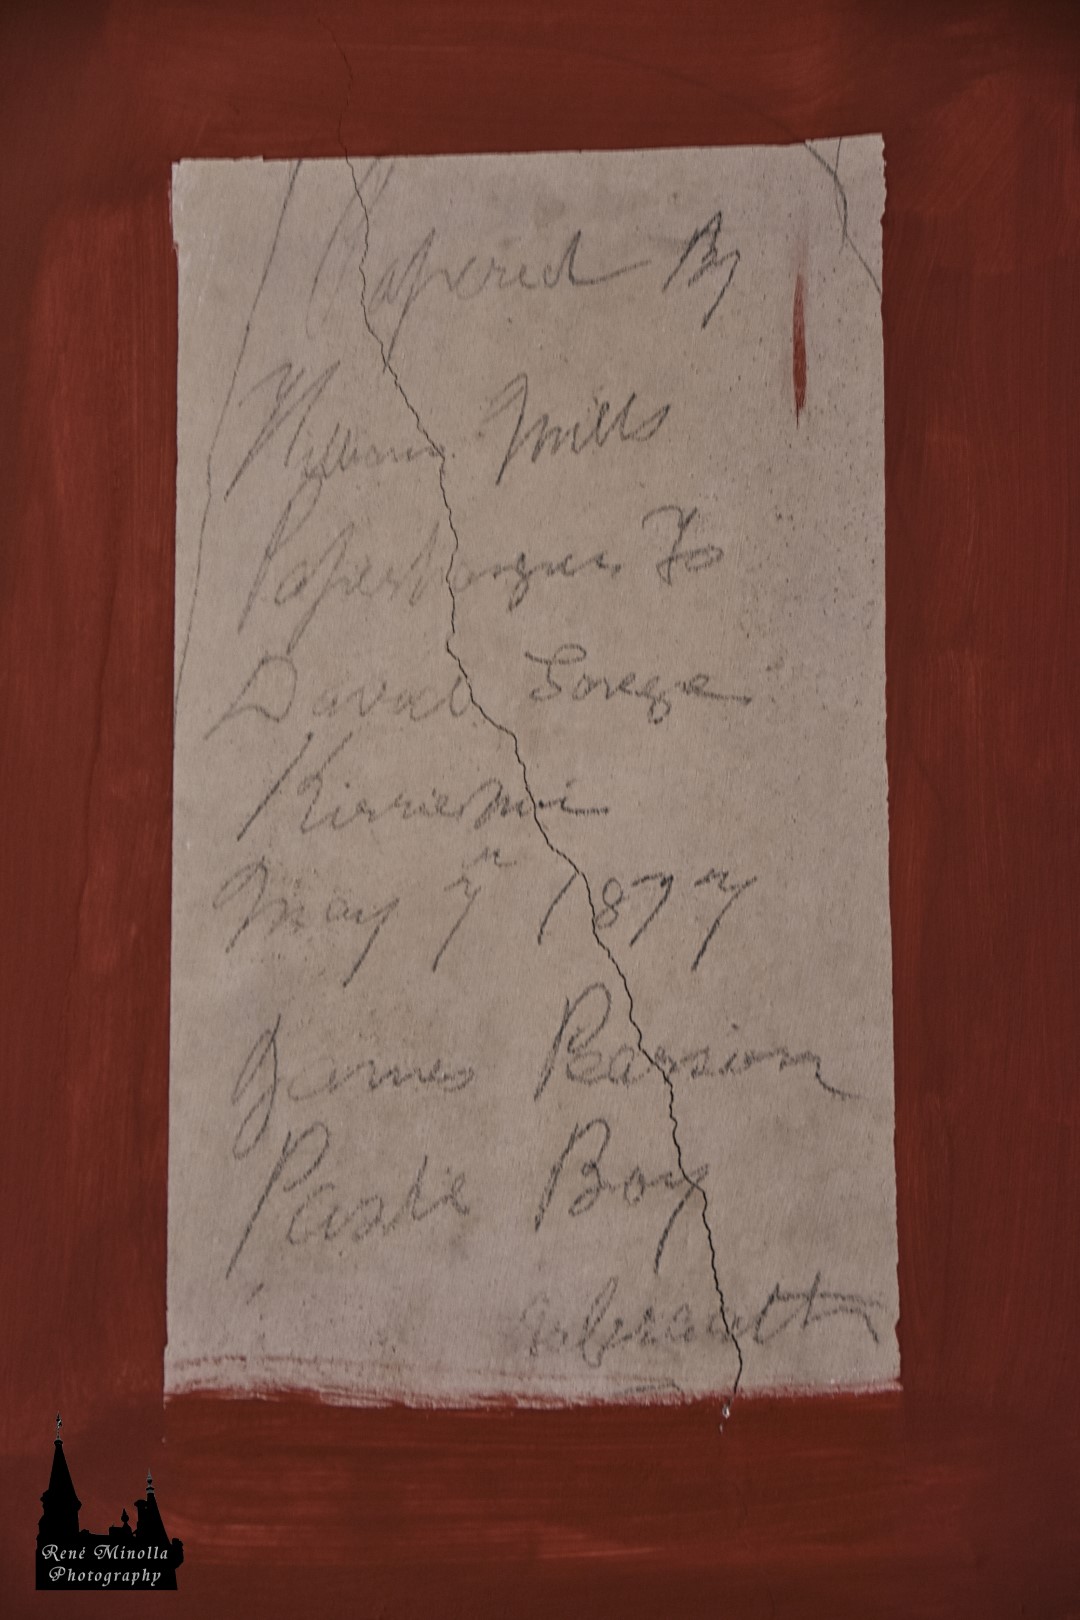 Papered By
William Mills
Paperhanger To
David
Kirriemui
May 7 1877
James Pearson
Paste Boy
René Minolla
Photography